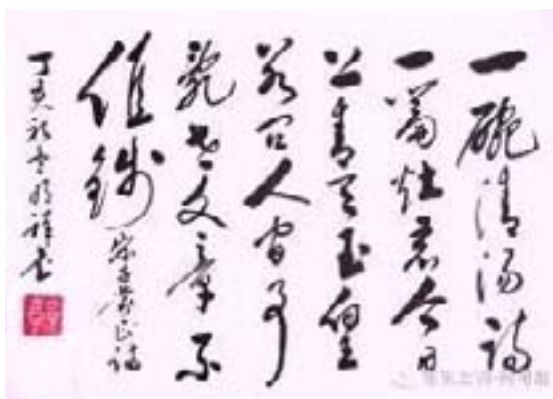 一碗清汤诗
一篇灶君今日
上青天玉皇
若问人间事
乱世文章不
值钱 宋吕蒙正诗
丁亥 祥书